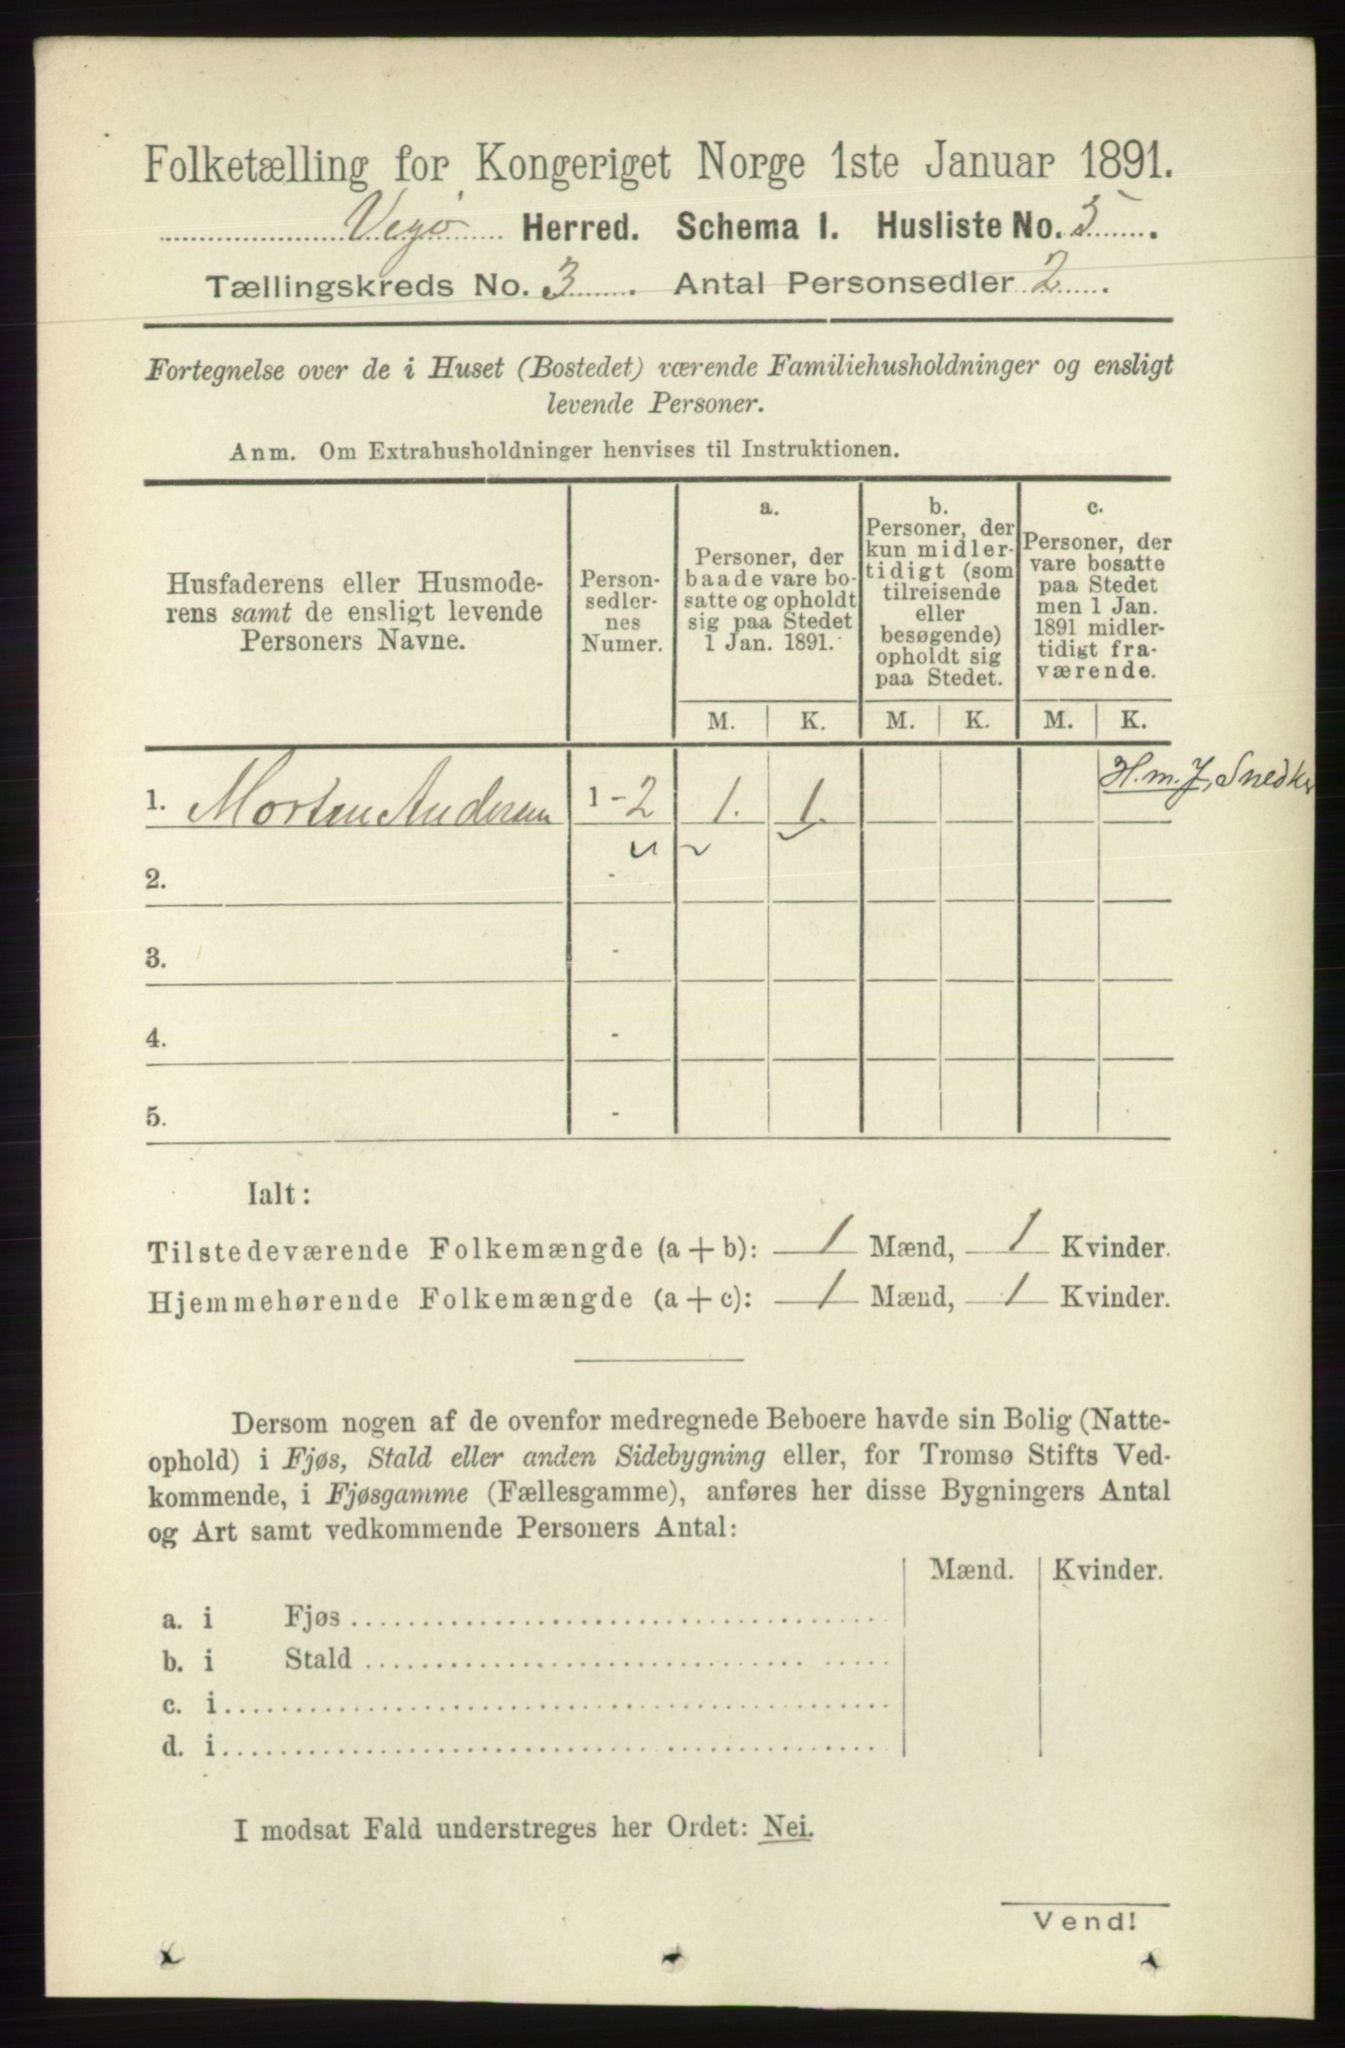 Folketælling for Kongeriget Norge 1ste Januar 1891.
Vegø Herred. Schema I. Husliste No. 5.
Tællingskreds No. 3. Antal Personsedler 2.
Fortegnelse over de i Huset (Bostedet) værende Familiehusholdninger og ensligt
levende Personer.
Anm. Om Extrahusholdninger henvises til Instruktionen.
Husfaderens eller Husmode-
rens samt de ensligt levende
Personers Navne.
Person-
sedler-
nes
Numer.
a.
Personer, der
baade vare bo-
satte og opholdt
sig paa Stedet
1 Jan. 1891.
b.
Personer, der
kun midler-
tidigt (som
tilreisende
eller
besøgende)
opholdt sig
paa Stedet.
c.
Personer, der
vare bosatte
paa Stedet
men 1 Jan.
1891 midler-
tidigt fra-
værende.
M. K. M. K. M. K.
H.m.J, Snedker
1. Morten Andersen 1-2 1. 1.
2. -
3. -
4. -
5. -
Ialt:
Tilstedeværende Folkemængde (a + b): 1 Mænd, 1 Kvinder.
Hjemmehørende Folkemængde (a + c): 1 Mænd, 1 Kvinder.
Dersom nogen af de ovenfor medregnede Beboere havde sin Bolig (Natte-
ophold) i Fjøs, Stald eller anden Sidebygning eller, for Tromsø Stifts Ved-
kommende, i Fjøsgamme (Fællesgamme), anføres her disse Bygningers Antal
og Art samt vedkommende Personers Antal:
Mænd. Kvinder.
a. i Fjøs
b. i Stald
c. i
d. i
I modsat Fald understreges her Ordet: Nei.
Vend!